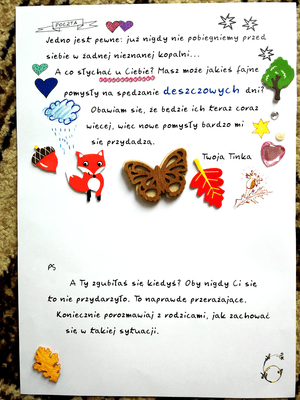 POCZTA
Jedno jest pewne: już nigdy nie pobiegniemy przed
siebie w żadnej nieznanej kopalni...
A co słychać u Ciebie? Masz może jakieś fajne
pomysły na spędzanie deszczowych dni?
Obawiam się, że będzie ich teraz coraz
więcej, więc nowe pomysły bardzo mi
się przydadzą.
Twoja Tinka
PS
A Ty zgubiłaś się kiedyś? Oby nigdy Ci się
to nie przydarzyło. To naprawdę przerażające.
Koniecznie porozmawiaj z rodzicami, jak zachować
się w takiej sytuacji.